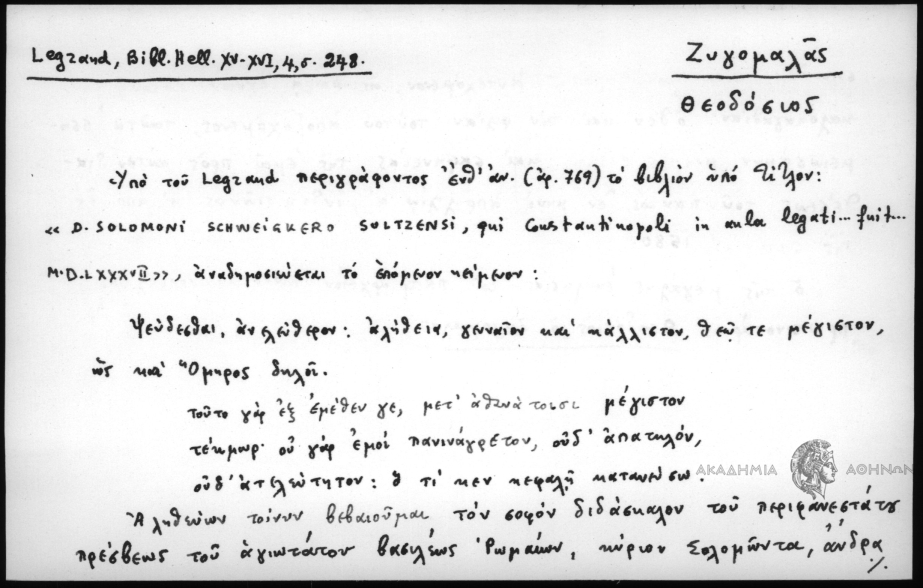 Legrand, Bibl. Hell. XV-XVI, 4, σ. 248.
Ζυγομαλᾶς
Θεοδόσιος
Ὑπό τοῦ Legrand περιγράφοντος ἐπ' ἀν. (ἀρ. 769) τό βιβλίον ὑπό τίτλον:
« D. SOLOMONI SCHWEIGKERO SULTZENSI, qui Constantinopoli in aula legati... fuit...
M.D.LXXXVII», ἀναδημοσιεύεται τό ἑπόμενον κείμενον:
Ψεύδεσθαι, ἀνελεύθερον: ἀλήθεια, γενναῖον καί κάλλιστον, θεῷ τε μέγιστον,
ὡς καί Ὅμηρος δηλοῖ.
τοῦτο γάρ ἐξ ἐμέθεν γε, μετ' ἀθανάτοισι μέγιστον
τέκμωρ· οὐ γάρ ἐμοί παλινάγρετον, οὐδ' ἀπατηλόν,
οὐδ' ἀτελεύτητον: ὅ τί κεν κεφαλῇ κατανεύσω:
ΑΚΑΔΗΜΙΑ ΑΘΗΝΩΝ
Ἀληθεύων τοίνυν βεβαιοῦμαι τόν σοφόν διδάσκαλον τοῦ περιφανεστάτου
πρέσβεως τοῦ ἁγιωτάτου βασιλέως Ῥωμαίων, κύριον Σολομῶντα, ἄνδρα
./.